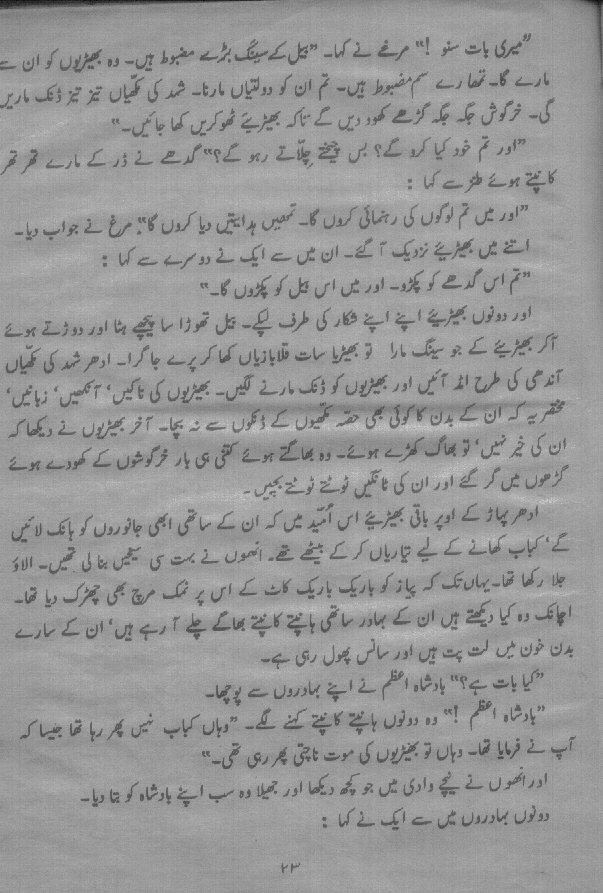 ”میری بات سنو !“ مرغے نے کہا۔ ”بیل کے سینگ بڑے مضبوط ہیں۔ وہ بھیڑیوں کو ان سے
مارے گا۔ تمھارے سم مضبوط ہیں۔ تم ان کو دولتیاں مارنا۔ شہد کی مکھیاں تیز تیز ڈنک ماریں
گی۔ خرگوش جگہ جگہ گڑھے کھود دیں گے تاکہ بھیڑیئے ٹھوکریں کھا جائیں۔“
”اور تم خود کیا کرو گے؟ بس چیختے چلّاتے رہو گے؟“ گدھے نے ڈر کے مارے تھر تھر
کانپتے ہوئے طنز سے کہا :
”اور میں تم لوگوں کی رہنمائی کروں گا۔ تمھیں ہدایتیں دیا کروں گا“۔ مرغ نے جواب دیا۔
اتنے میں بھیڑیئے نزدیک آ گئے۔ ان میں سے ایک نے دوسرے سے کہا :
”تم اس گدھے کو پکڑو۔ اور میں اس بیل کو پکڑوں گا۔“
اور دونوں بھیڑیئے اپنے اپنے شکار کی طرف لپکے۔ بیل تھوڑا سا پیچھے ہٹا اور دوڑتے ہوئے
آکر بھیڑیئے کے جو سینگ مارا تو بھیڑیا سات قلابازیاں کھا کر پرے جا گرا۔ ادھر شہد کی مکھیاں
آندھی کی طرح امڈ آئیں اور بھیڑیوں کو ڈنک مارنے لگیں۔ بھیڑیوں کی ناکیں، آنکھیں، زبانیں،
مختصر یہ کہ ان کے بدن کا کوئی بھی حصّہ مکھیوں کے ڈنکوں سے نہ بچا۔ آخر بھیڑیوں نے دیکھا کہ
ان کی خیر نہیں، تو بھاگ کھڑے ہوئے۔ وہ بھاگتے ہوئے کتنی ہی بار خرگوشوں کے کھودے ہوئے
گڑھوں میں گر گئے اور ان کی ٹانگیں ٹوٹتے ٹوٹتے بچیں۔
ادھر پہاڑ کے اوپر باقی بھیڑیئے اس اُمّید میں کہ ان کے ساتھی ابھی جانوروں کو ہانک لائیں
گے، کباب کھانے کے لیے تیاریاں کر کے بیٹھے تھے۔ انھوں نے بہت سی سیخیں بنا لی تھیں۔ الاؤ
جلا رکھا تھا۔ یہاں تک کہ پیاز کو باریک باریک کاٹ کے اس پر نمک مرچ بھی چھڑک دیا تھا۔
اچانک وہ کیا دیکھتے ہیں ان کے بہادر ساتھی ہانپتے کانپتے بھاگے چلے آ رہے ہیں، ان کے سارے
بدن خون میں لت پت ہیں اور سانس پھول رہی ہے۔
”کیا بات ہے؟“ بادشاہ اعظم نے اپنے بہادروں سے پوچھا۔
”بادشاہ اعظم !“ وہ دونوں ہانپتے کانپتے کہنے لگے۔ ”وہاں کباب نہیں پھر رہا تھا جیسا کہ
آپ نے فرمایا تھا۔ وہاں تو بھیڑیوں کی موت ناچتی پھر رہی تھی۔“
اور انھوں نے نیچے وادی میں جو کچھ دیکھا اور جھیلا وہ سب اپنے بادشاہ کو بتا دیا۔
دونوں بہادروں میں سے ایک نے کہا :
۲۳